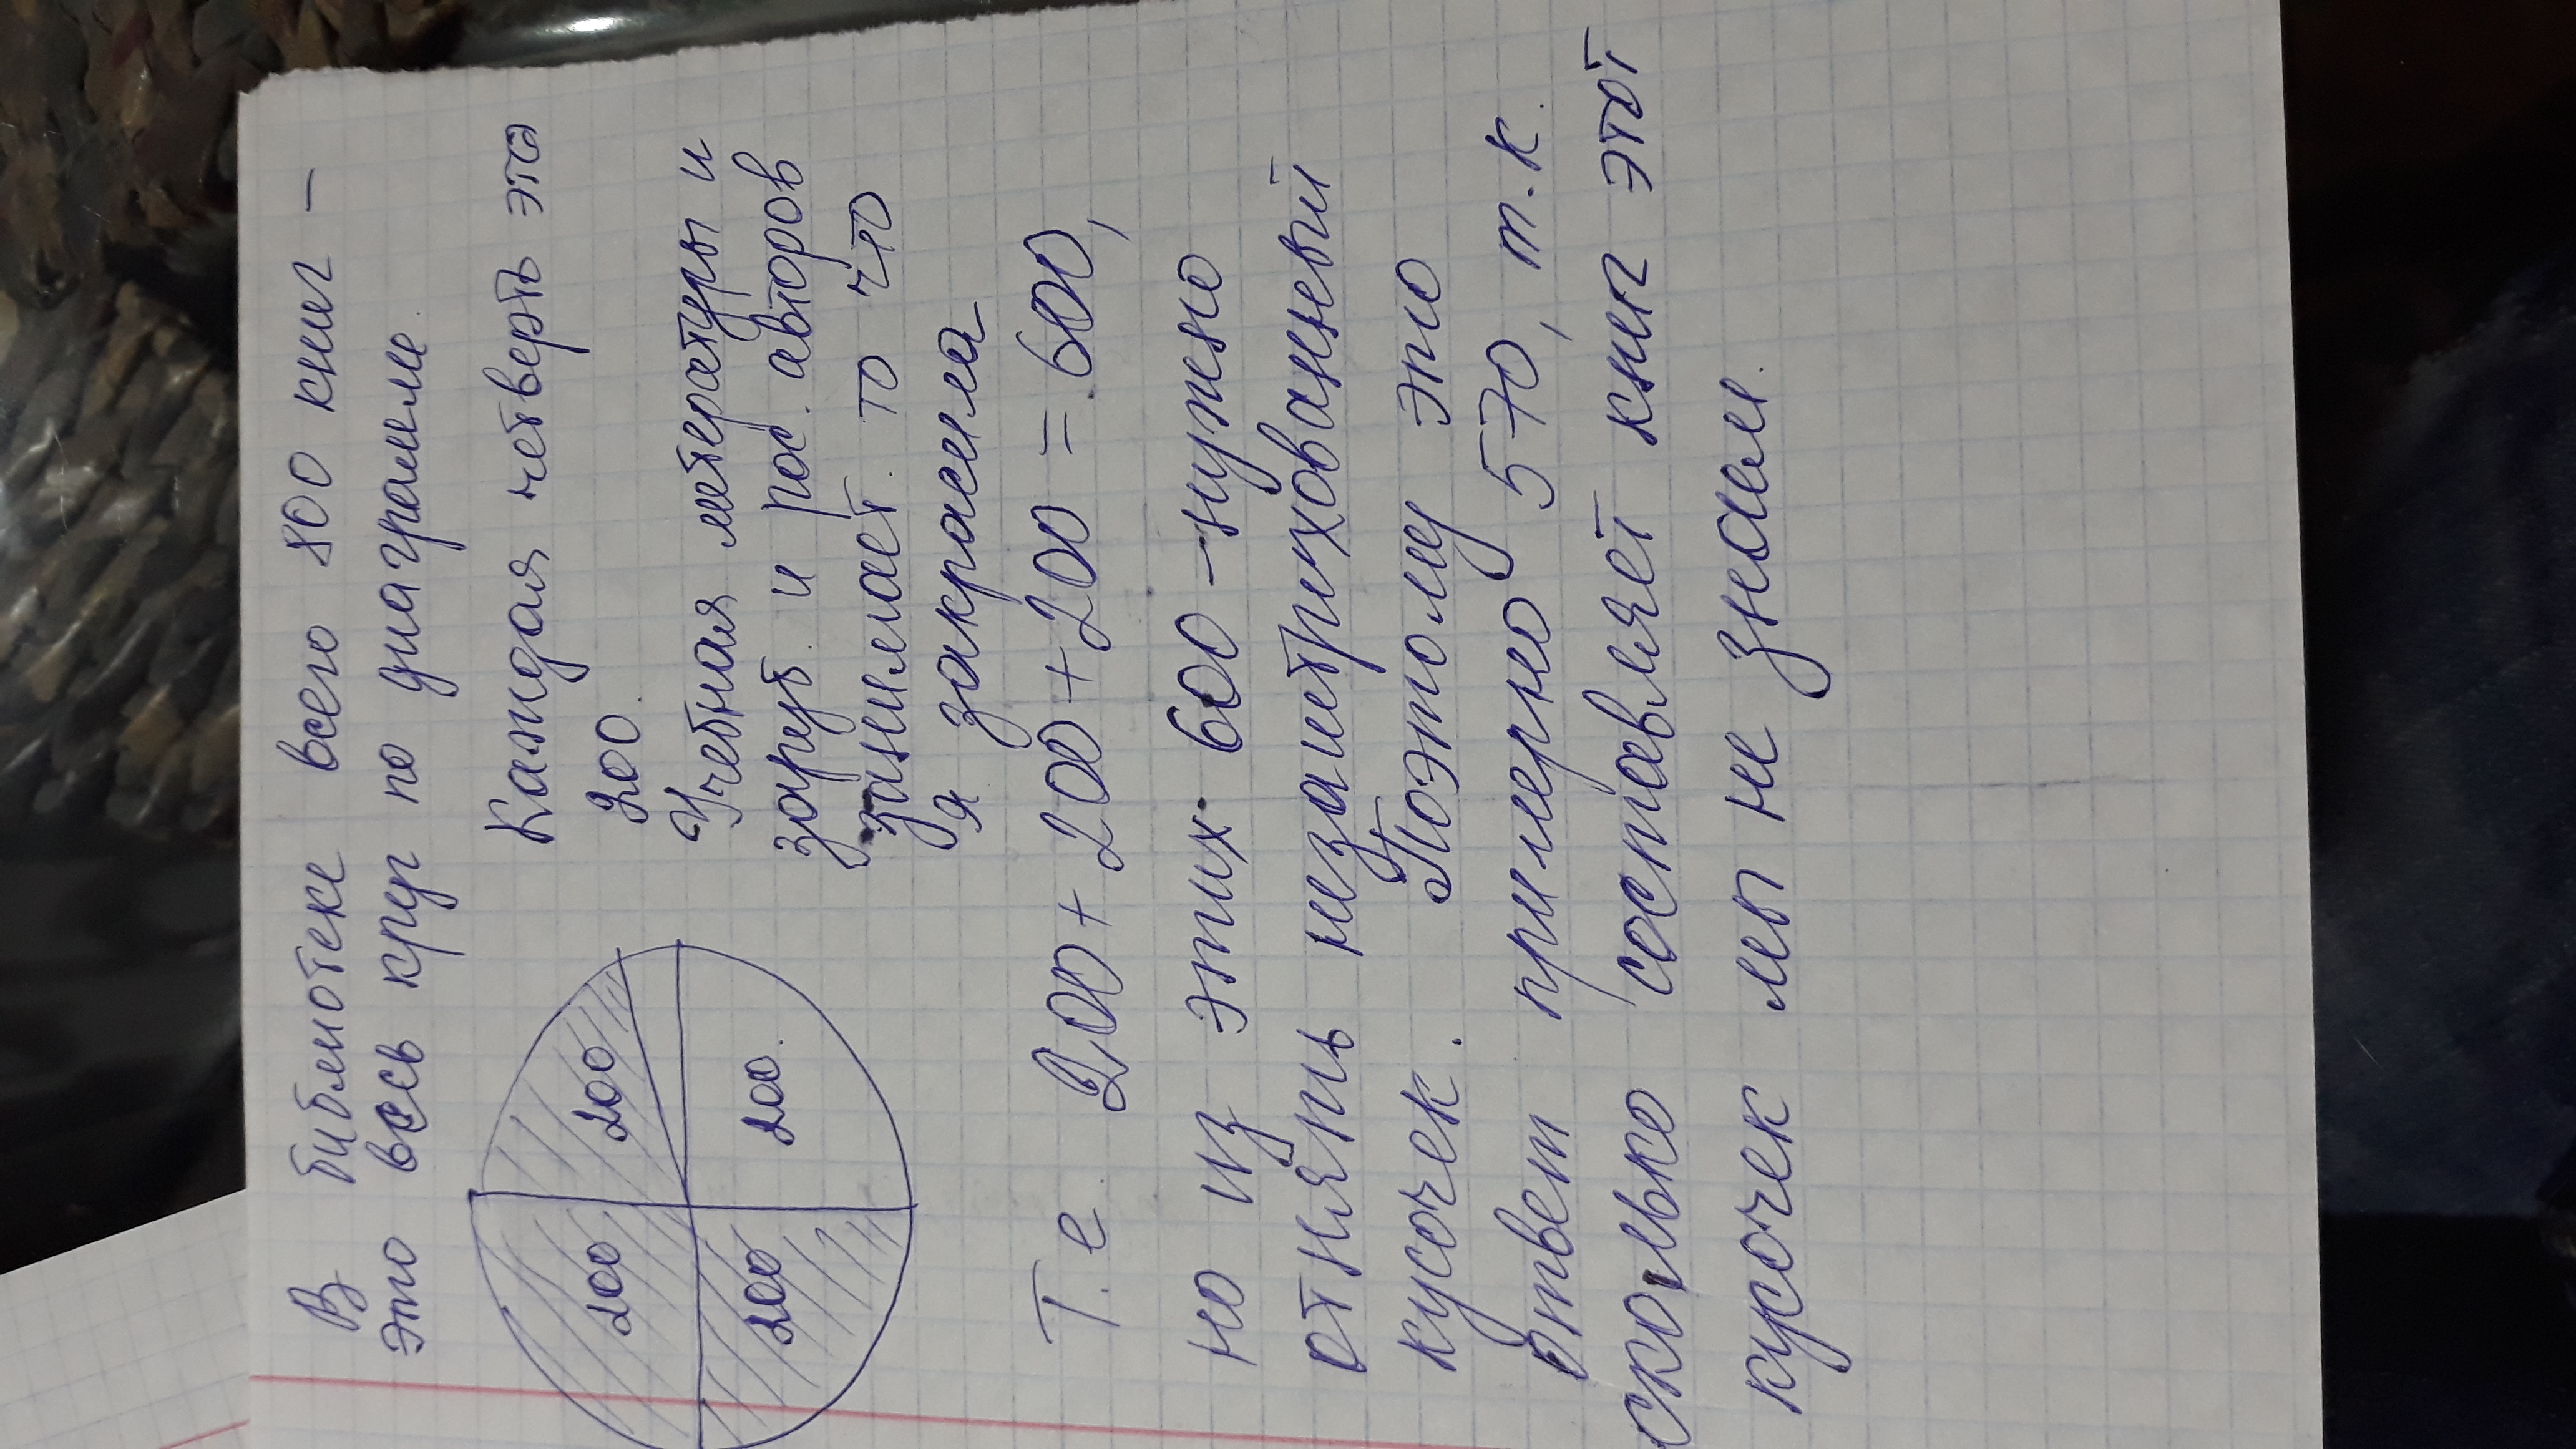 В библиотеке всего 800 книг –
это весь круг по диаграмме.
Каждая четверть это
200.
Учебная литературы и
заруб. и рос. авторов
занимает то что
я закрасила
200
200
200
200.
Т.е 200+200+200=600,
но из этих 600 – нужно
отнять незаштрихованный
кусочек. Поэтому это
ответ примерно 570, т.к.
сколько составляет книг этот
кусочек мы не знаем.